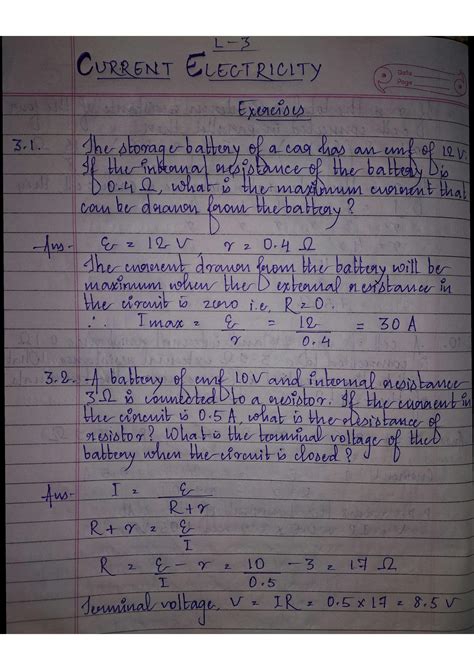 L-3
CURRENT ELECTRICITY
Date
Page
Exercises
3.1. The storage battery of a car has an emf of 12 V.
If the internal resistance of the battery is
0.4 Ω, what is the maximum current that
can be drawn from the battery?
Ans- ε = 12 V r = 0.4 Ω
The current drawn from the battery will be
maximum when the external resistance in
the circuit is zero i.e, R = 0.
∴ Imax = ε/r = 12/0.4 = 30 A
3.2. A battery of emf 10 V and internal resistance
3 Ω is connected to a resistor. If the current in
the circuit is 0.5 A, what is the resistance of
resistor? What is the terminal voltage of the
battery when the circuit is closed?
Ans- I = ε/R+r
R + r = ε/I
R = ε/I - r = 10/0.5 - 3 = 17 Ω
Terminal voltage, V = IR = 0.5 × 17 = 8.5 V